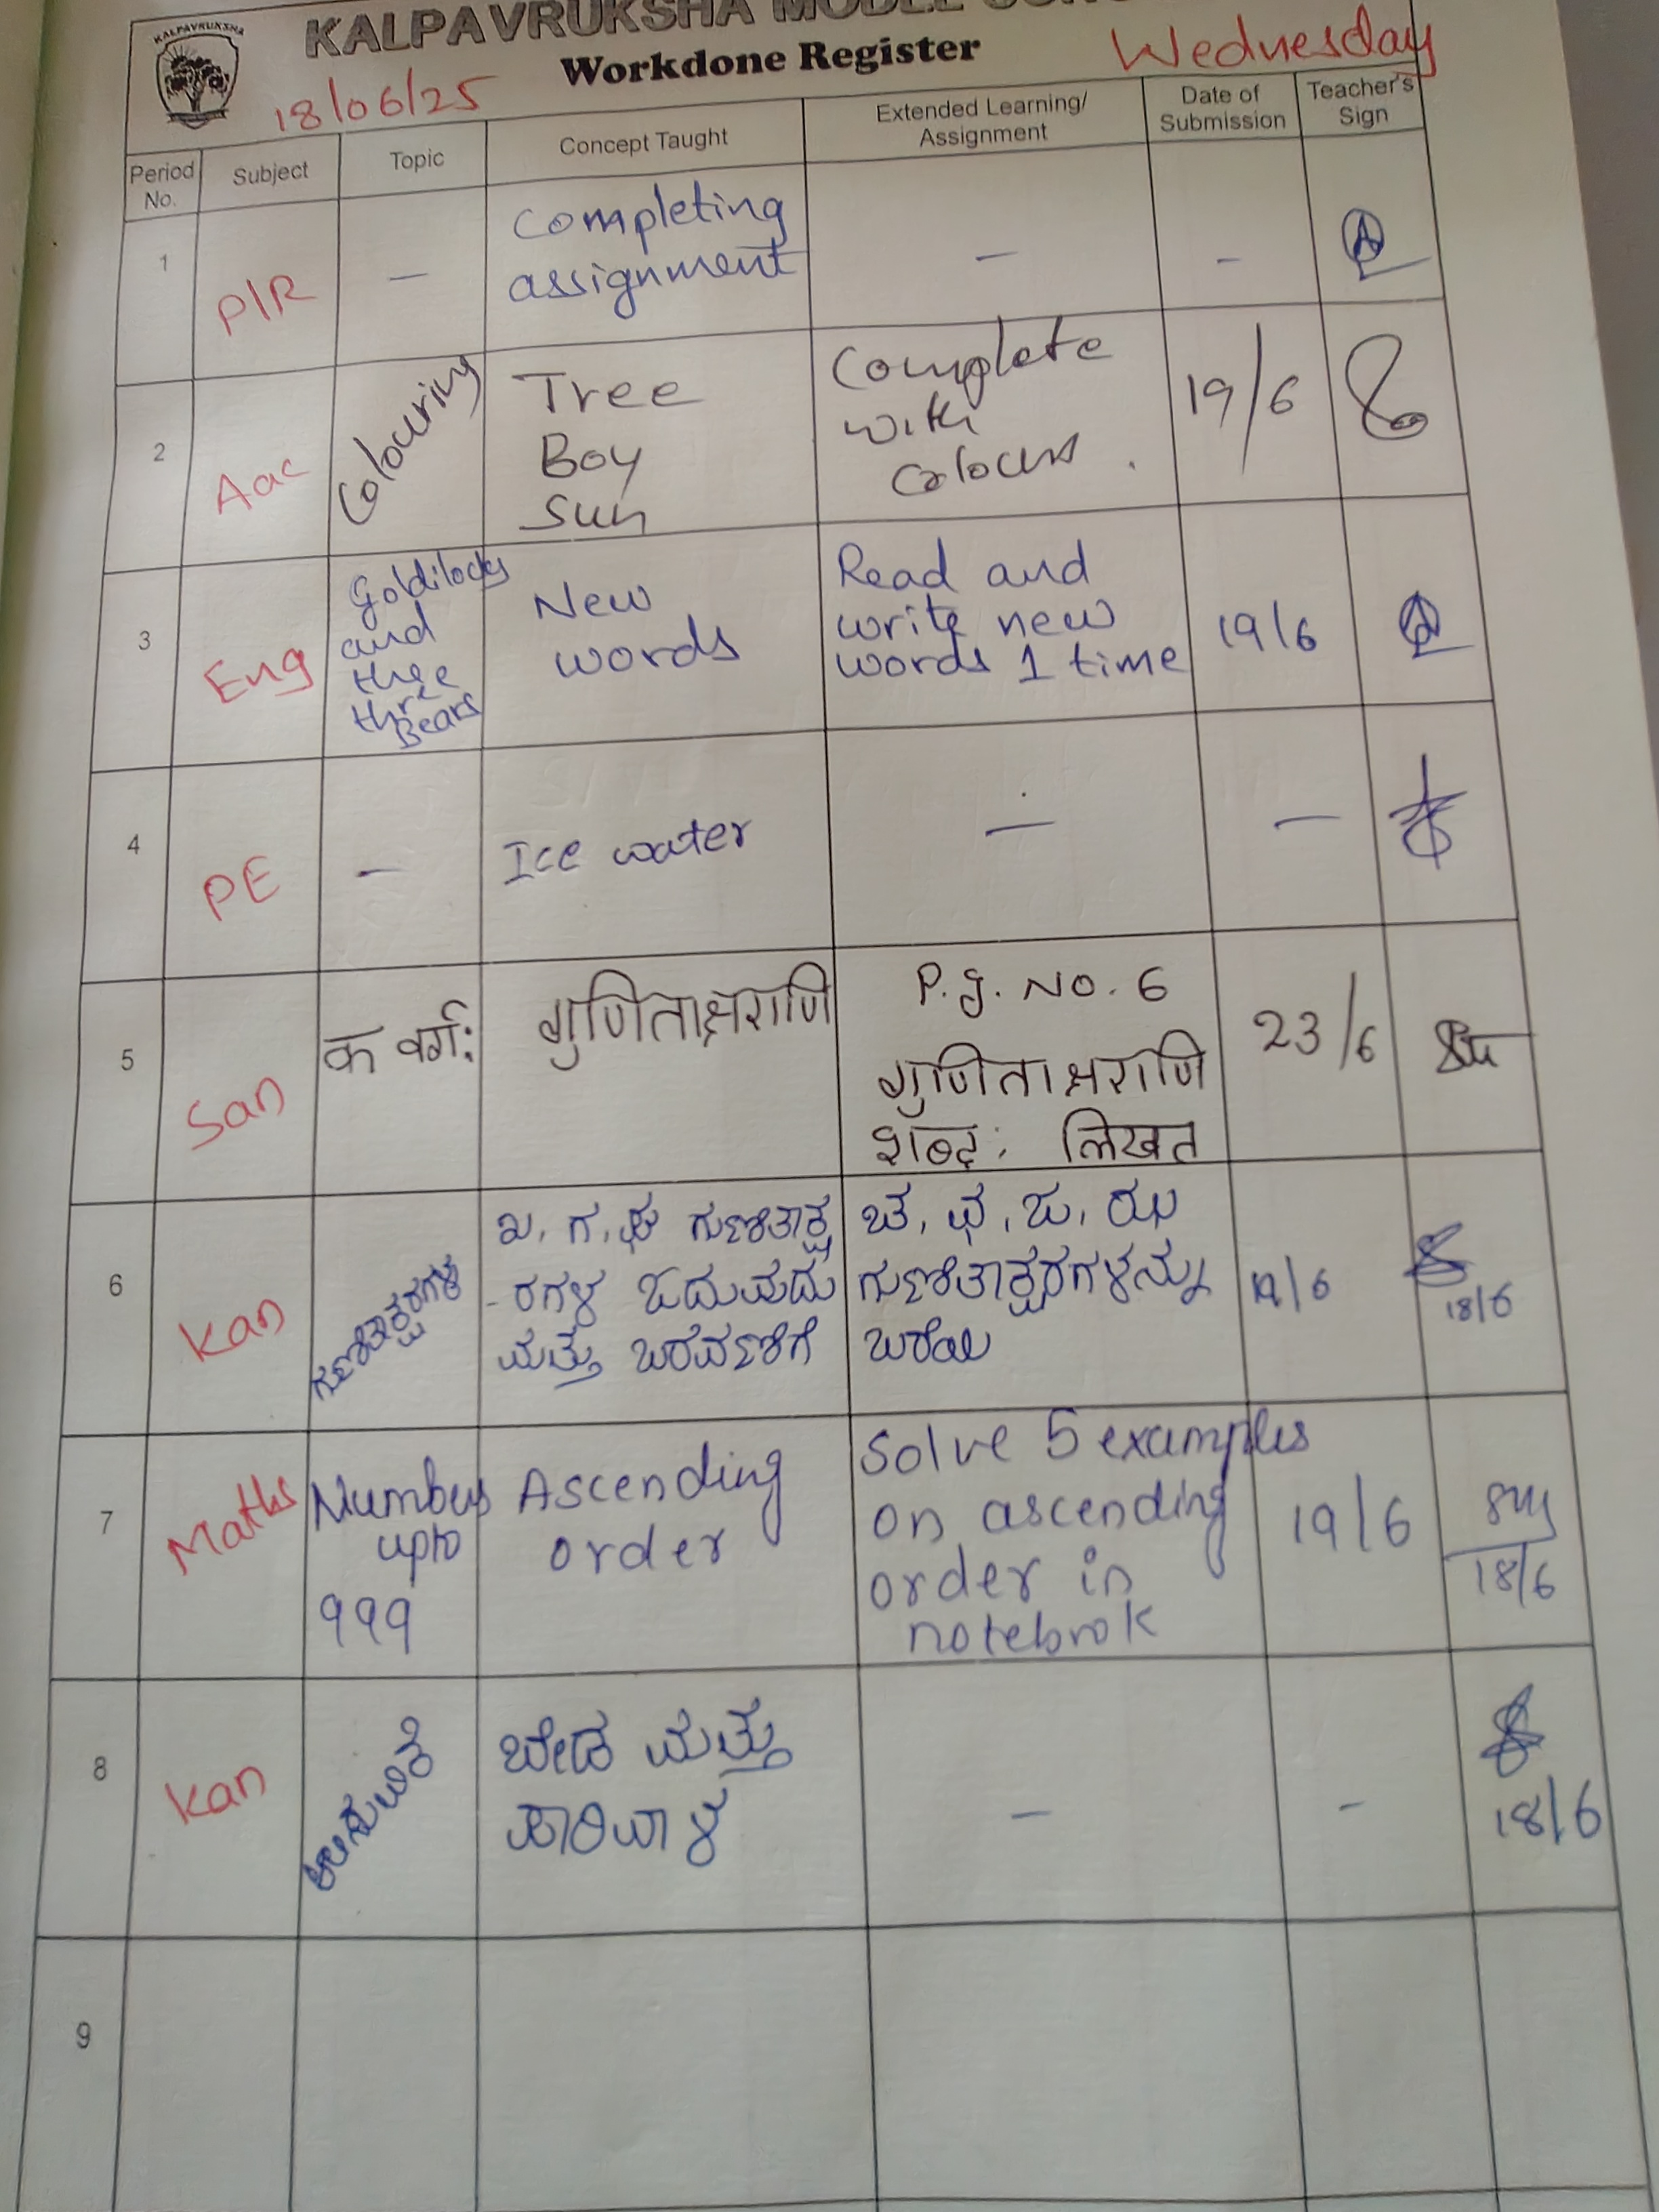 KALPAVRUKSHA
KALPAVRUKSHA MODEL
Workdone Register
18/06/25
Wednesday
Period No.
Subject
Topic
Concept Taught
Extended Learning/
Assignment
Date of
Submission
Teacher's
Sign
1
P/R
—
Completing
assignment
—
-
2
Aac
Colouring
Tree
Boy
Sun
Complete
with
Colours.
19/6
3
Eng
Goldilocks
and
three
Bears
New
words
Read and
write new
words 1 time
19/6
4
PE
—
Ice water
—
—
5
San
क वर्ग:
गुणिताक्षराणि
P.g. No. 6
गुणिताक्षराणि
शब्द: लिखत
23/6
6
Kan
ಗುಣಿತಾಕ್ಷರಗಳ
ಖ, ಗ, ಘ ಗುಣಿತಾಕ್ಷ
-ರಗಳ ಓದುವುದು
ಮತ್ತು ಬರವಣಿಗೆ
ಚ, ಛ, ಜ, ಝ
ಗುಣಿತಾಕ್ಷರಗಳನ್ನು
ಬರೆಯಿ
19/6
18/6
7
Maths
Numbers
upto
999
Ascending
order
Solve 5 examples
on ascending
order in
notebook
19/6
18/6
8
Kan
ಬೇಡ ಮತ್ತು
ಪಾರಿವಾಳ
—
-
18/6
9